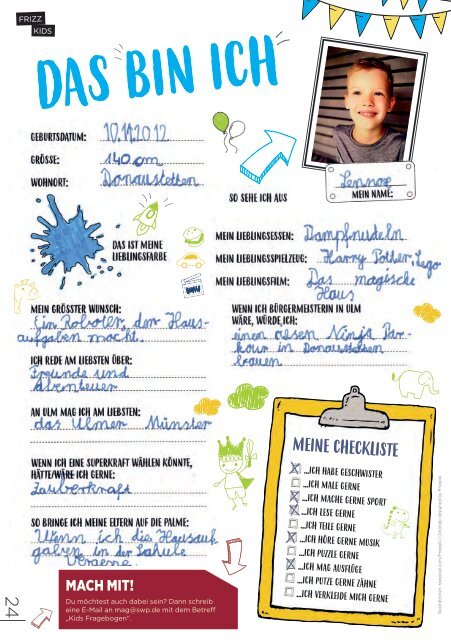 FRIZZ
KIDS
DAS BIN ICH
GEBURTSDATUM: 10.11.2012
GRÖSSE: 140 cm
WOHNORT: Donaustetten
SO SEHE ICH AUS
Lennox
MEIN NAME:
DAS IST MEINE
LIEBLINGSFARBE
MEIN LIEBLINGSESSEN: Dampfnudeln
MEIN LIEBLINGSSPIELZEUG: Harry Potter, Lego
MEIN LIEBLINGSFILM: Das magische
Haus
MEIN GRÖSSTER WUNSCH:
Ein Roboter, der Haus-
aufgaben macht.
WENN ICH BÜRGERMEISTERIN IN ULM
WÄRE, WÜRDE ICH:
einen riesen Ninja Par-
kour in Donaustetten
bauen
ICH REDE AM LIEBSTEN ÜBER:
Freunde und
Abenteuer
AN ULM MAG ICH AM LIEBSTEN:
das Ulmer Münster
WENN ICH EINE SUPERKRAFT WÄHLEN KÖNNTE,
HÄTTE/WÄRE ICH GERNE:
Zauberkraft
SO BRINGE ICH MEINE ELTERN AUF DIE PALME:
Wenn ich die Hausauf
gaben in der Schule
MEINE CHECKLISTE
...ICH HABE GESCHWISTER
...ICH MALE GERNE
...ICH MACHE GERNE SPORT
...ICH LESE GERNE
...ICH TEILE GERNE
...ICH HÖRE GERNE MUSIK
...ICH PUZZLE GERNE
...ICH MAG AUSFLÜGE
...ICH PUTZE GERNE ZÄHNE
...ICH VERKLEIDE MICH GERNE
MACH MIT!
Du möchtest auch dabei sein? Dann schreib
eine E-Mail an mag@swp.de mit dem Betreff
„Kids Fragebogen“.
24